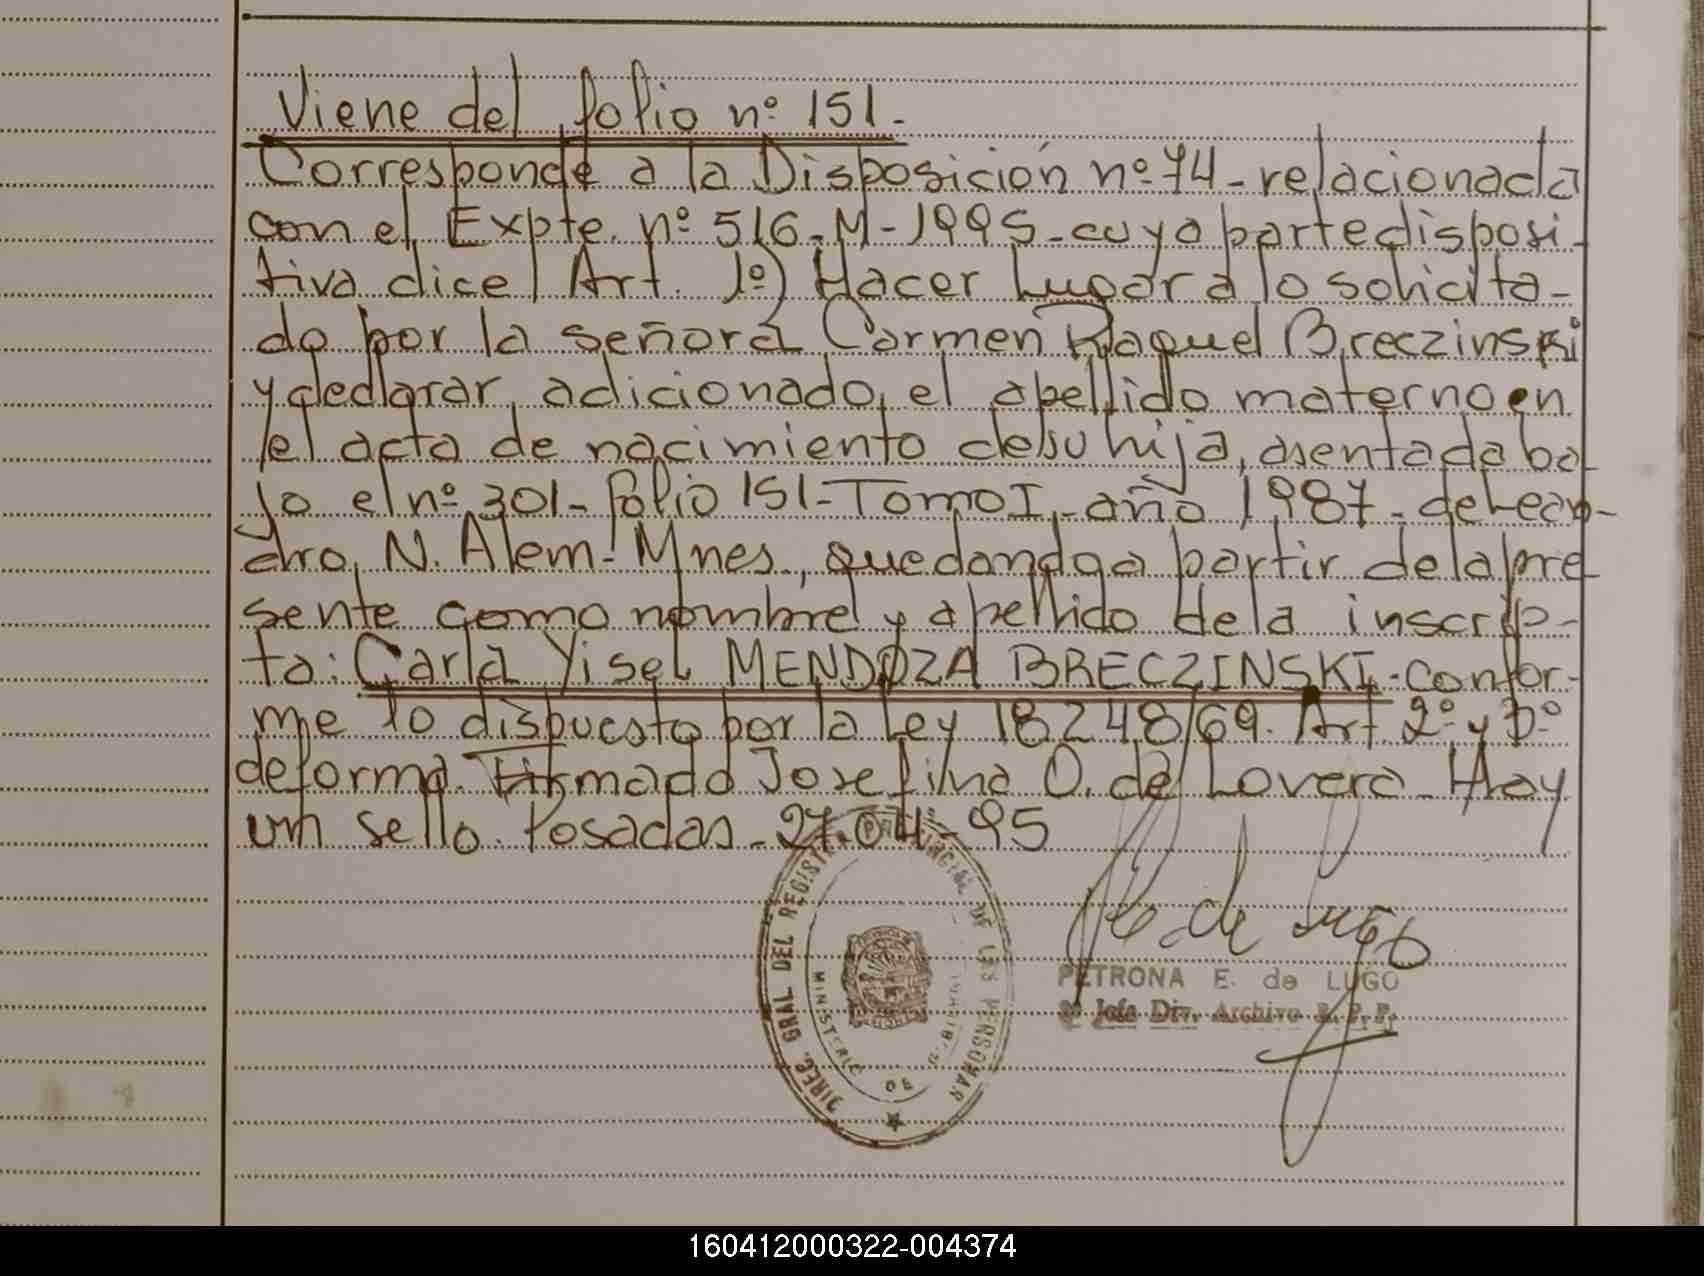 Viene del folio nº 151.
Corresponde a la Disposición nº 74 - relacionada
con el Expte. nº 516-M-1995 - cuya parte disposi-
tiva dice | Art. 1º) Hacer lugar a lo solicita-
do por la señora Carmen Raquel Breczinski
y declarar adicionado el apellido materno en
el acta de nacimiento de su hija, asentada ba-
jo el nº 301 - folio 151 - Tomo I - año 1987 - de Lean-
dro N. Alem - Mnes., quedando a partir de la pre-
sente como nombre y apellido de la inscrip-
ta: Carla Yisel MENDOZA BRECZINSKI - confor-
me lo dispuesto por la Ley 18248/69. Art. 2º y Dº
de forma. Firmado Josefina O. de Lovera - Hay
un sello. Posadas - 27-04-95
DIREC. GRAL DEL REGISTRO PROVINCIAL DE LAS PERSONAS
MINISTERIO DE
E. de Lugo
PETRONA E. de LUGO
Jefa Div. Archivo R. P. P.
160412000322-004374